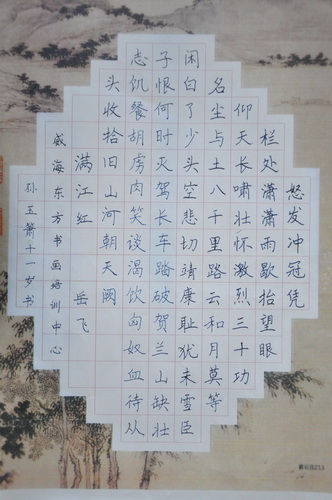 怒发冲冠凭
栏处潇潇雨歇抬望眼
仰天长啸壮怀激烈三十功
名尘与土八千里路云和月莫等
闲白了少头空悲切靖康耻犹未雪臣
子恨何时灭驾长车踏破贺兰山缺壮
志饥餐胡虏肉笑谈渴饮匈奴血待从
头收拾旧山河朝天阙
满江红 岳飞
威海东方书画培训中心
孙玉箫十一岁书